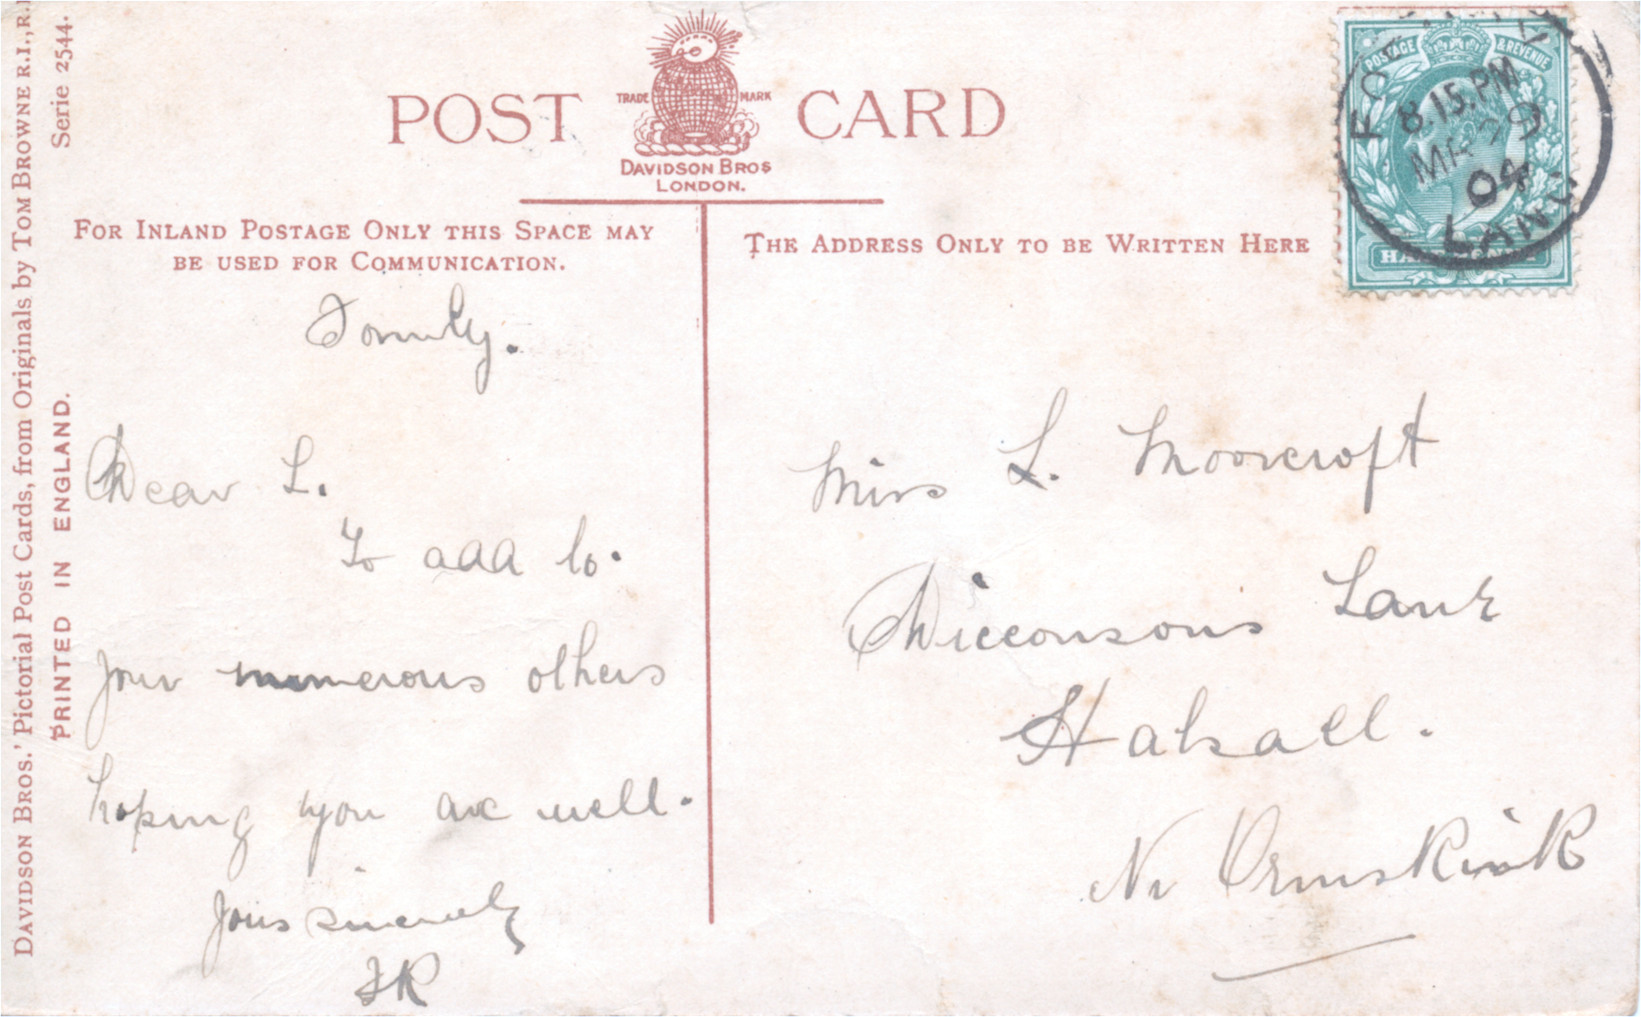 DAVIDSON BROS.' Pictorial Post Cards, from Originals by TOM BROWNE R.I., R.
Serie 2544.
PRINTED IN ENGLAND.
POST CARD
TRADE MARK
DAVIDSON BROS
LONDON.
FOR INLAND POSTAGE ONLY THIS SPACE MAY
BE USED FOR COMMUNICATION.
THE ADDRESS ONLY TO BE WRITTEN HERE
POSTAGE & REVENUE
8.15.PM
MR 29
04
LANC
Formby.
Dear L.
To add to
your numerous others
hoping you are well.
Yours sincerely
Miss L. Moorcroft
Wicconsons Lane
Halsall.
Nr Ormskirk